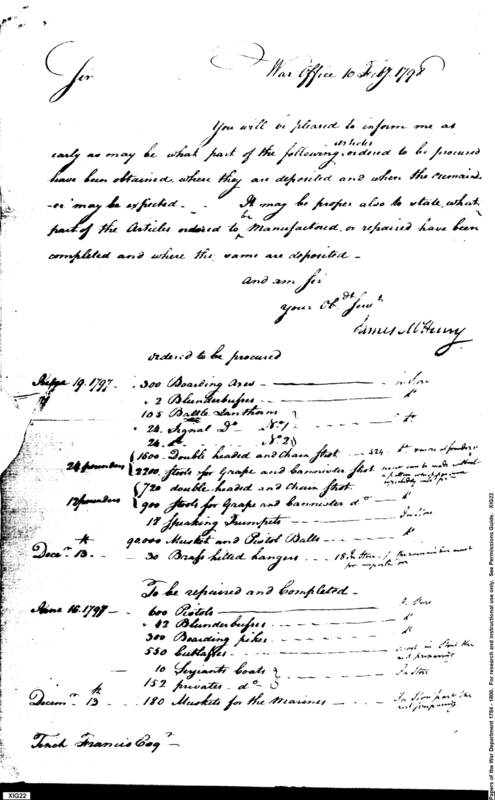 Sir War Office 10 Feby. 1798
You will be pleased to inform me as
early as may be what part of the following articles ordered to be procured
have been obtained, where they are deposited and when the remain-
-er may be expected - It may be proper also to state, what
part of the Articles ordered to be Manufactured, or repaired have been
completed and where the same are deposited -
and am Sir
your Obdt Servt
James McHenry
ordered to be procured
19. 1797 - 300 Boarding Axes - in Store
2 Blunderbusses - do
105 Battle Lanthorns
24. Signal Do No. 1
24. do No. 2
24 pounders 1600. Double headed and Chain Shot - 424
2200. Stools for Grape and Cannister Shot
12 pounders 720 double headed and Chain Shot
900 Stools for Grape and Cannester do - do
12 Speaking Trumpets In Store
90000 Musket and Pistol Balls - do
Decr. 13 - 30 Brass hilted hangers - 18 In Store / the remainder must
for
To be repaired and Completed -
June 16. 1797 - 600 Pistols - In Store
42 Blunderbusses - do
300 Boarding pikes - do
550 Cutlasses - in Store
and preparing
10 Serjeants Coats In Store
152 privates do
Decemr. 13 - 180 Muskets for the Marines - In Store part
preparing
Tench Francis Esqr -
XIG22
Papers of the War Department 1784 - 1800. For research and instructional use only. See Permissions Guide. XIG22